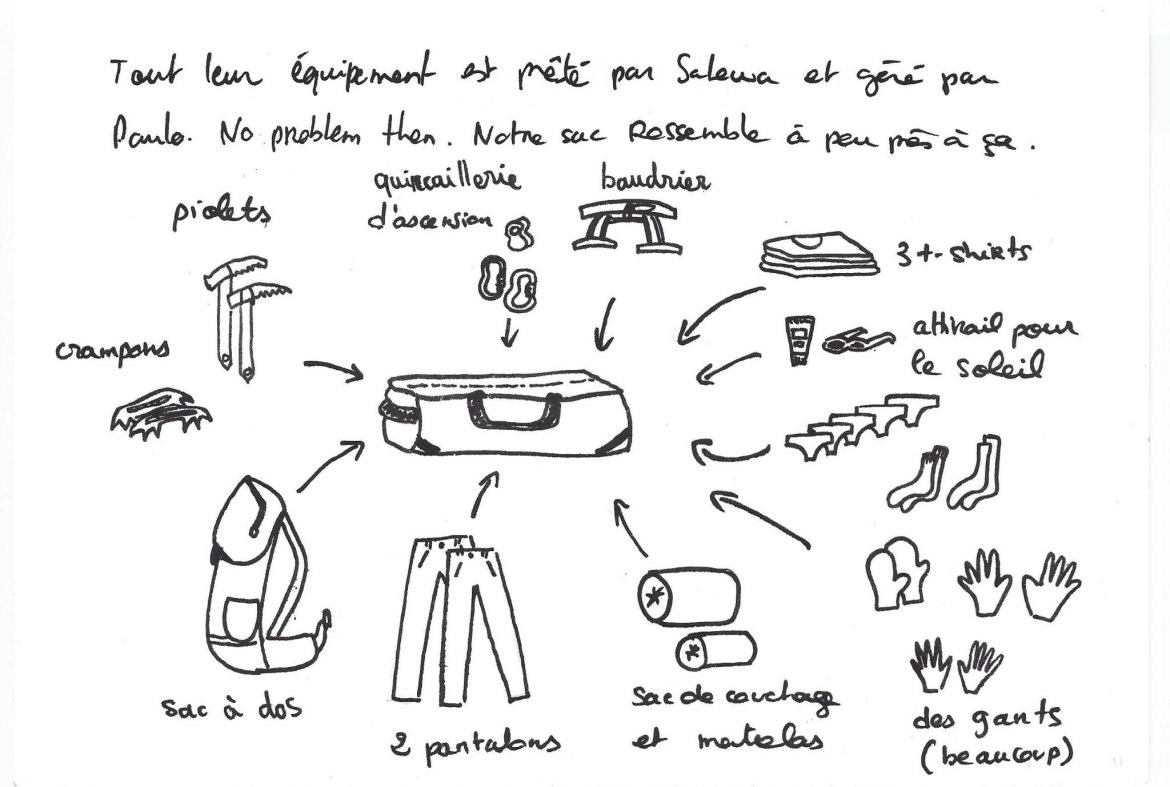 Tout leur équipement est prêté par Salewa et géré par
Paulo. No problem then. Notre sac ressemble à peu près à ça.
quincaillerie
d'ascension
baudrier
piolets
3 t-shirts
attirail pour
le soleil
crampons
sac à dos
2 pantalons
sac de couchage
et matelas
des gants
(beaucoup)